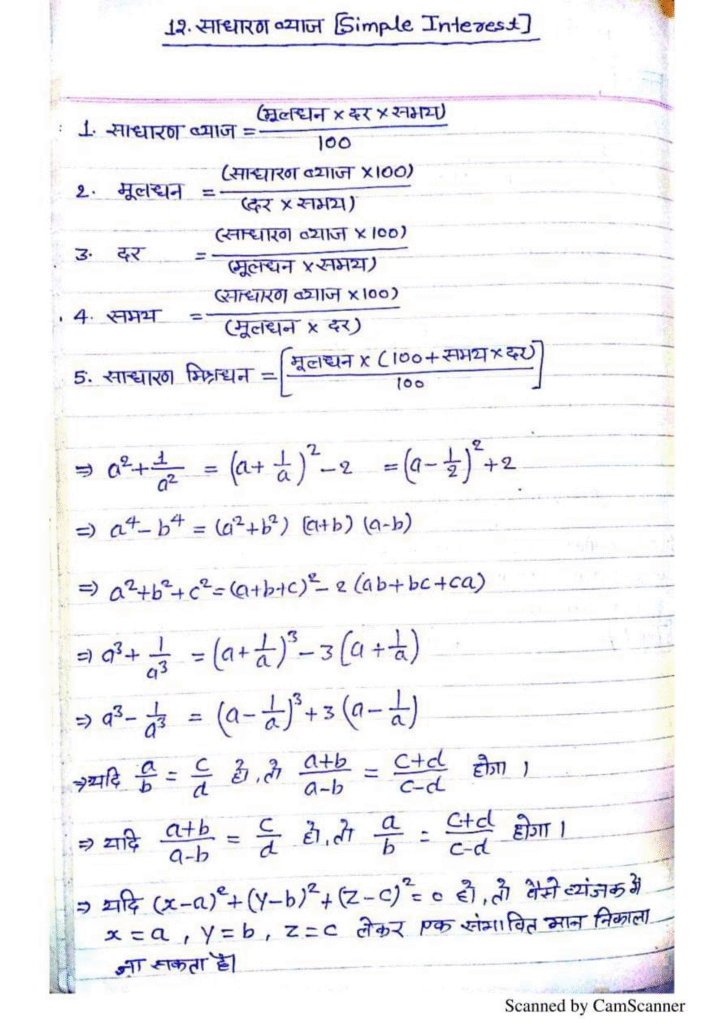 12. साधारण ब्याज [Simple Interest]
1. साधारण ब्याज = (मूलधन × दर × समय) / 100
2. मूलधन = (साधारण ब्याज ×100) / (दर × समय)
3. दर = (साधारण ब्याज × 100) / (मूलधन × समय)
4. समय = (साधारण ब्याज ×100) / (मूलधन × दर)
5. साधारण मिश्रधन = [मूलधन × (100 + समय × दर) / 100]
⇒ a² + 1/a² = (a + 1/a)² - 2 = (a - 1/2)² + 2
⇒ a⁴ - b⁴ = (a² + b²) (a+b) (a-b)
⇒ a² + b² + c² = (a+b+c)² - 2 (ab+bc+ca)
⇒ a³ + 1/a³ = (a + 1/a)³ - 3 (a + 1/a)
⇒ a³ - 1/a³ = (a - 1/a)³ + 3 (a - 1/a)
⇒ यदि a/b = c/d हो, तो (a+b)/(a-b) = (c+d)/(c-d) होगा ।
⇒ यदि (a+b)/(a-b) = c/d हो, तो a/b = (c+d)/(c-d) होगा ।
⇒ यदि (x-a)² + (y-b)² + (z-c)² = 0 हो, तो वैसे व्यंजक में
x = a , y = b , z = c लेकर एक संभावित मान निकाला
जा सकता है।
Scanned by CamScanner